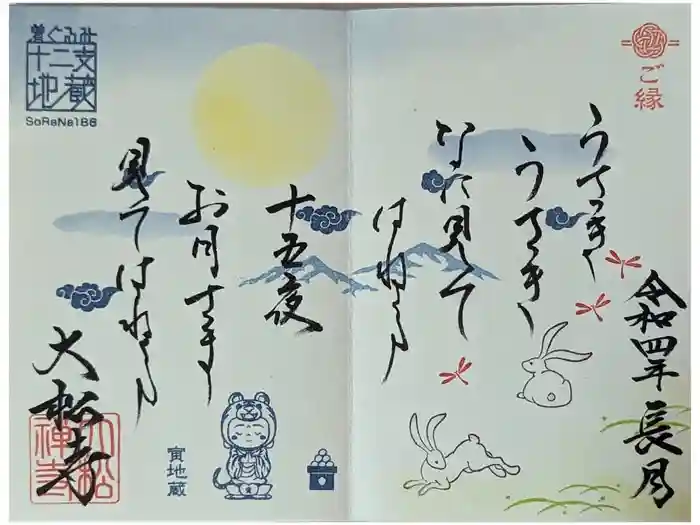 ご縁
令和四年長月
うさぎ
うさぎ
なに見て
はねる
十五夜
お月さま
見てはねる
大松寺
大松禅寺
着ぐるみ
十二支
地蔵
SoRaNa188
寅地蔵